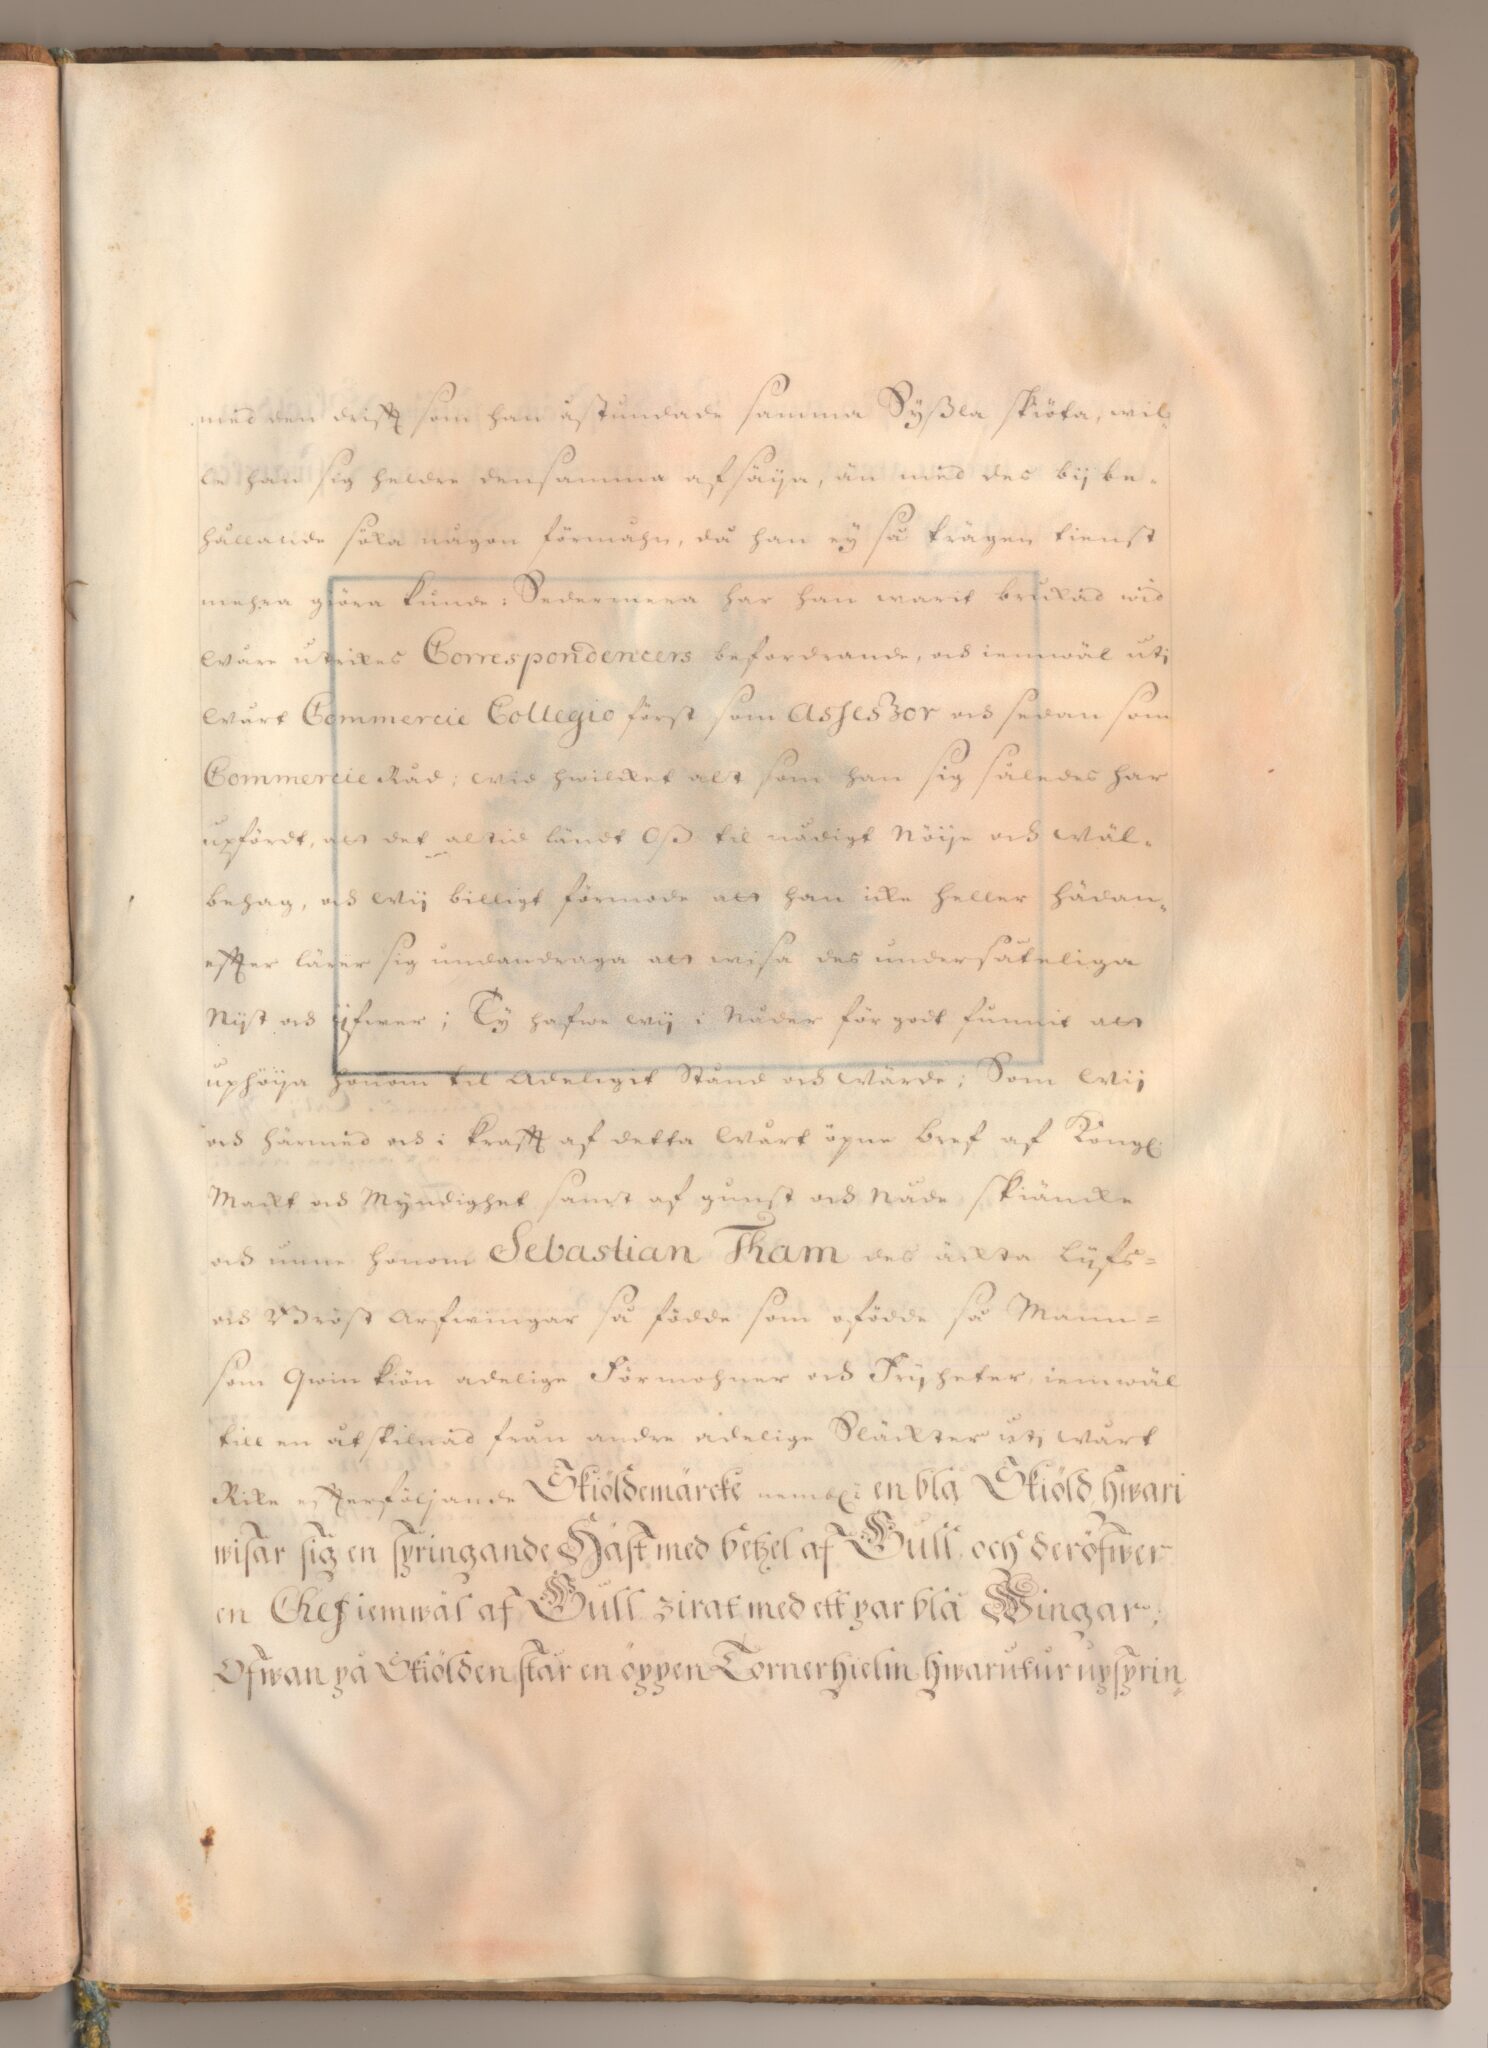 med den drifft som han åstundade samma Sÿßla skiöta, wil-
le han sig heldre densamma afsäija, än med des bij be-
hållande söka någon förmåhn, då han eÿ så trägen tienst
mehra giöra kunde; Sedermera har han warit brukad wid
Wåre utrikes Correspondencers befordrande, och iemwäl uti
Wårt Commercie Collegio först som Assessor och sedan som
Commercie Råd; wid hwilket alt som han sig således har
upfördt, att det altid ländt Oß til nådigt Nöije och wäl-
behag, och Wij billigt förmode att han icke heller hädan-
effter lärer sig undandraga att wisa des undersåteliga
Nijt och ijfwer; Tÿ hafwe Wij i Nåder för godt funnit att
uphöija honom til Adeligit Stånd och Wärde; Som Wij
och härmed och i krafft af detta Wårt öpne Bref af Kongl.
Mackt och Mÿndighet samt af gunst och Nåde skiäncke
och unne honom Sebastian Tham des äckta Lijfs-
och Bröst Arfwingar så födde som ofödde så Mann-
som Qwin kiön adelige Förmohner och Frijheter, iemwäl
till en åtskilnad från andre adelige Släckter uti Wårt
Rike effterföljande Skiöldemärcke neml: en blå Skiöld, hwari
wisar sig en springande Häst med betzel af Gull, och deröfwer
en Chef iemwäl af Gull zirat med ett par blå Wingar;
Ofwan på Skiölden står en öppen Tornerhielm hwarutur upsprin-